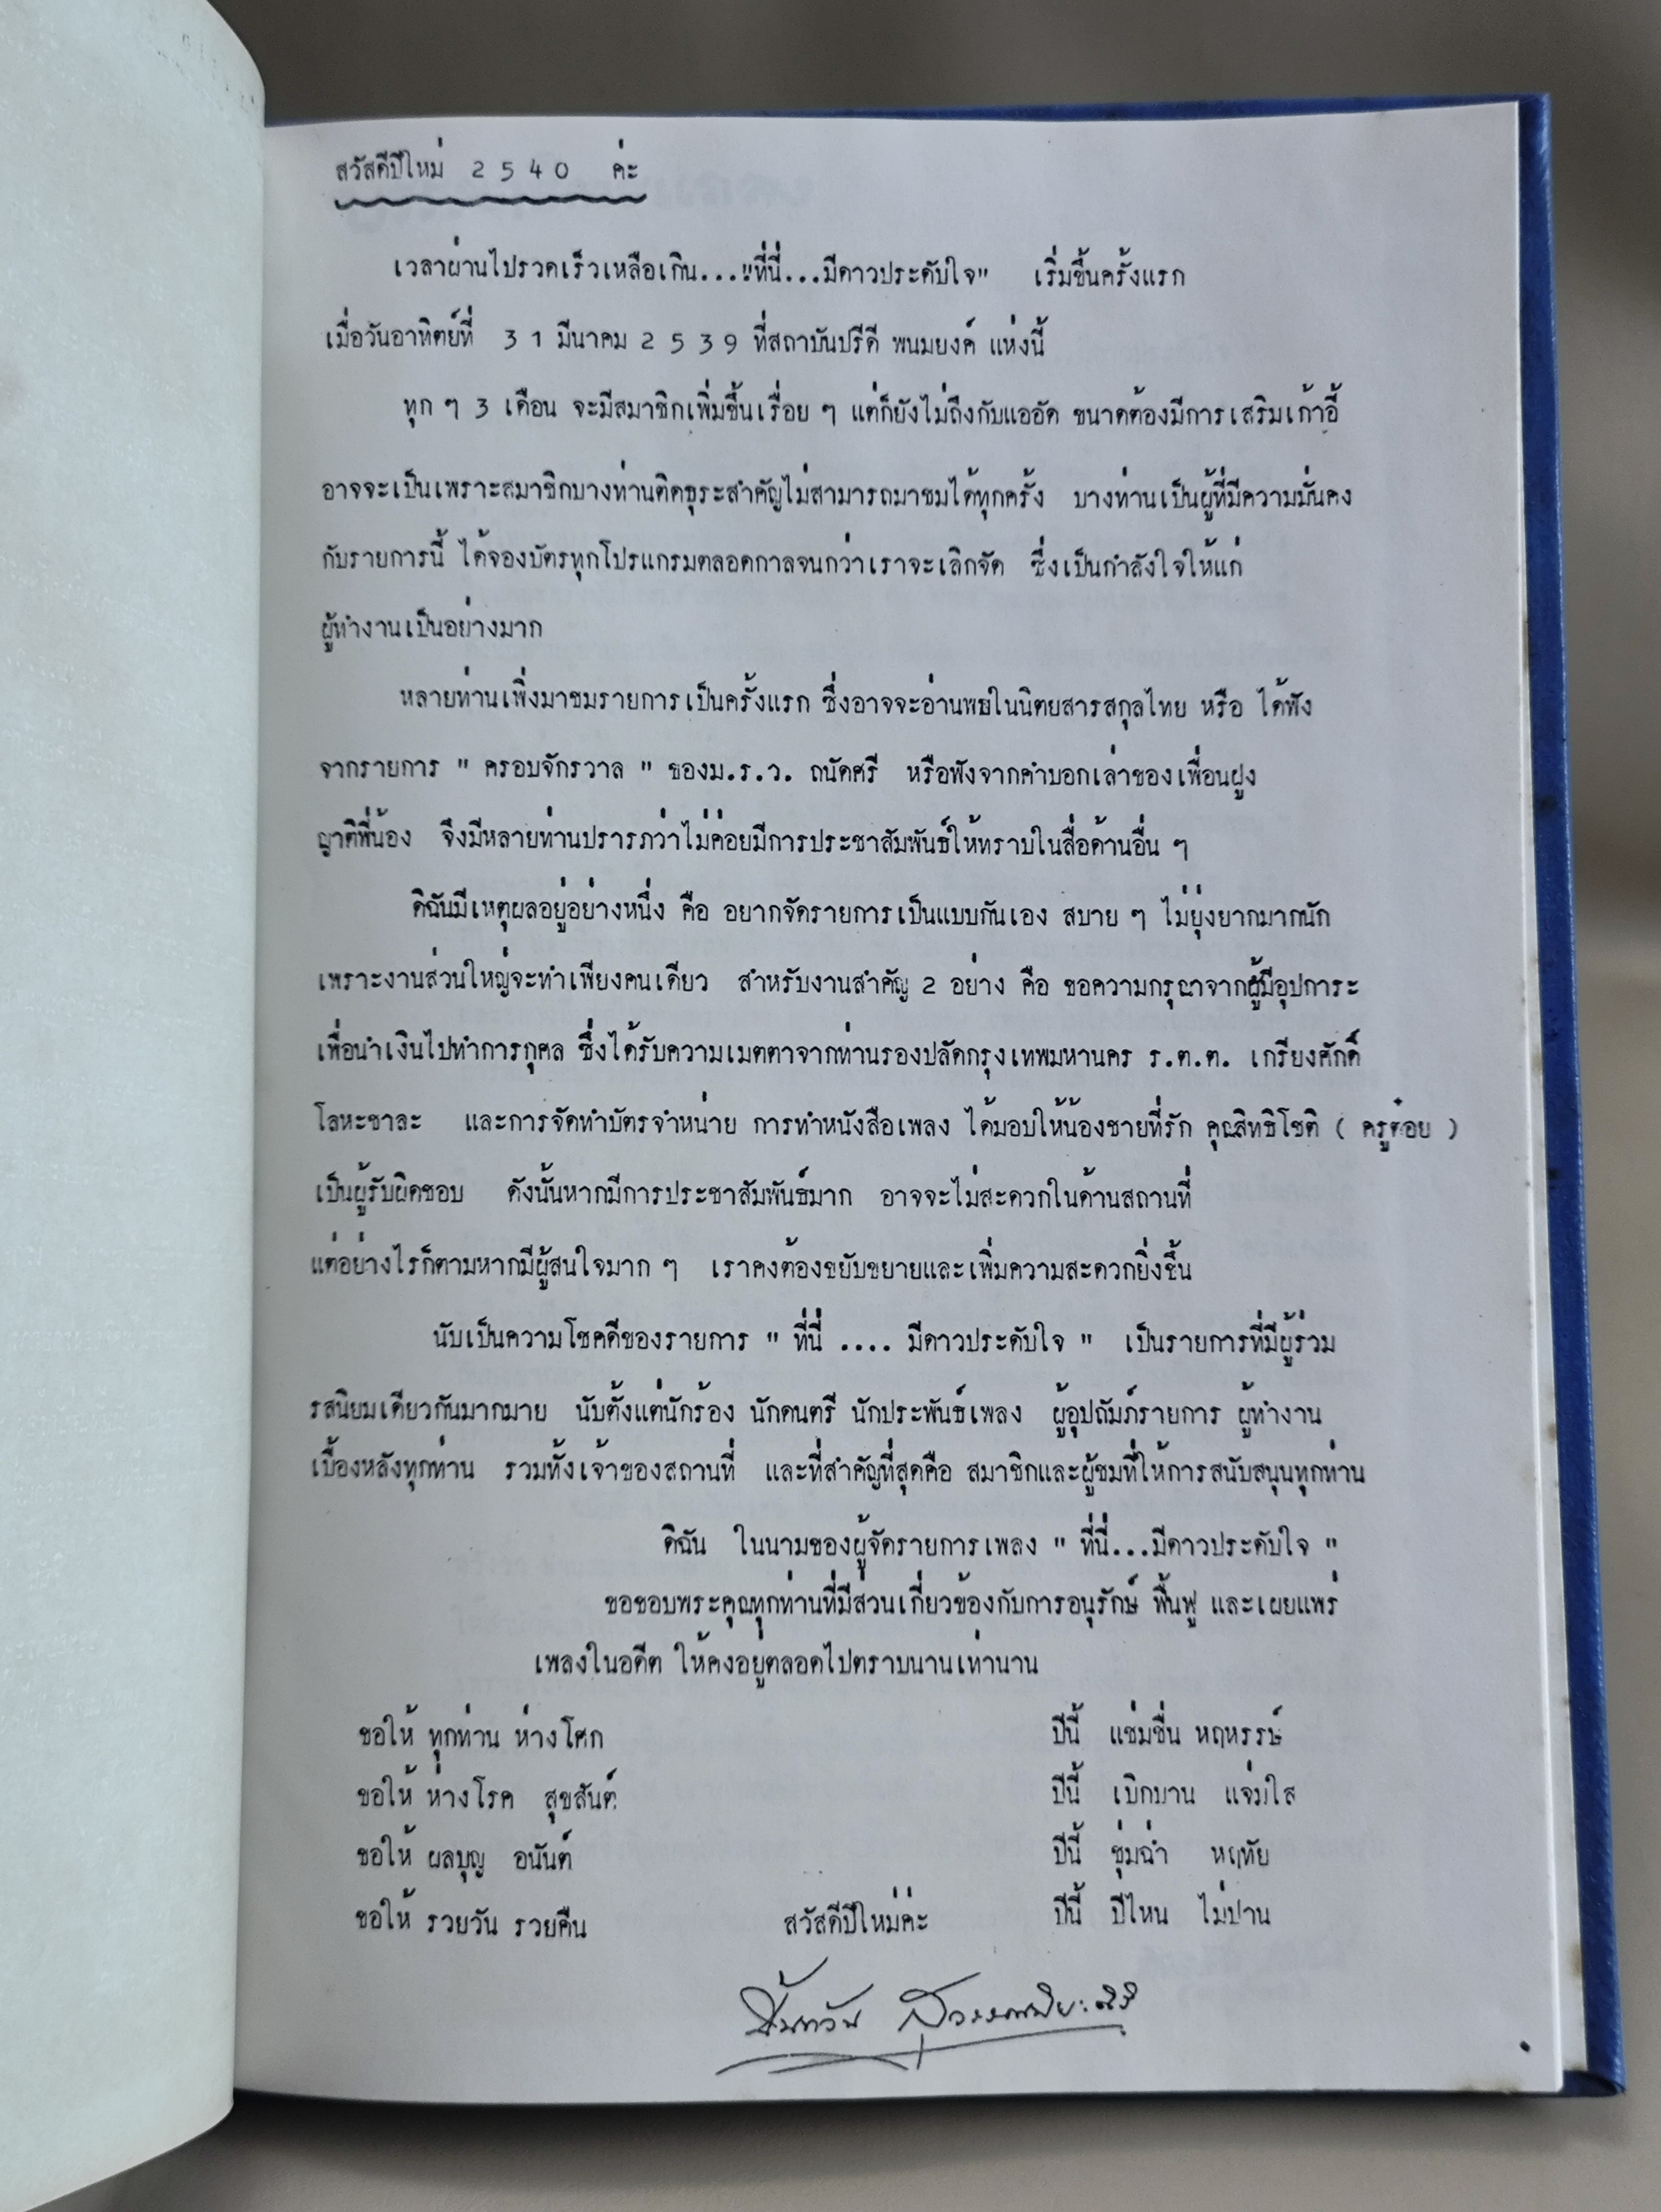 สวัสดีปีใหม่ 2 5 4 0 ค่ะ
เวลาผ่านไปรวดเร็วเหลือเกิน..."ที่นี่...มีดาวประดับใจ" เริ่มขึ้นครั้งแรก
เมื่อวันอาทิตย์ที่ 3 1 มีนาคม 2 5 3 9 ที่สถาบันปรีดี พนมยงค์ แห่งนี้
ทุก ๆ 3 เดือน จะมีสมาชิกเพิ่มขึ้นเรื่อย ๆ แต่ก็ยังไม่ถึงกับแออัด ขนาดต้องมีการเสริมเก้าอี้
อาจจะเป็นเพราะสมาชิกบางท่านติดธุระสำคัญไม่สามารถมาชมได้ทุกครั้ง บางท่านเป็นผู้ที่มีความมั่นคง
กับรายการนี้ ได้จองบัตรทุกโปรแกรมตลอดกาลจนกว่าเราจะเลิกจัด ซึ่งเป็นกำลังใจให้แก่
ผู้ทำงานเป็นอย่างมาก
หลายท่านเพิ่งมาชมรายการเป็นครั้งแรก ซึ่งอาจจะอ่านพบในนิตยสารสกุลไทย หรือ ได้ฟัง
จากรายการ " ครอบจักรวาล " ของม.ร.ว. ถนัดศรี หรือฟังจากคำบอกเล่าของเพื่อนฝูง
ญาติพี่น้อง จึงมีหลายท่านปรารภว่าไม่ค่อยมีการประชาสัมพันธ์ให้ทราบในสื่อด้านอื่น ๆ
ดิฉันมีเหตุผลอยู่อย่างหนึ่ง คือ อยากจัดรายการเป็นแบบกันเอง สบาย ๆ ไม่ยุ่งยากมากนัก
เพราะงานส่วนใหญ่จะทำเพียงคนเดียว สำหรับงานสำคัญ 2 อย่าง คือ ขอความกรุณาจากผู้มีอุปการะ
เพื่อนำเงินไปทำการกุศล ซึ่งได้รับความเมตตาจากท่านรองปลัดกรุงเทพมหานคร ร.ต.ต. เกรียงศักดิ์
โลหะชาละ และการจัดทำบัตรจำหน่าย การทำหนังสือเพลง ได้มอบให้น้องชายที่รัก คุณสิทธิโชติ ( ครูต๋อย )
เป็นผู้รับผิดชอบ ดังนั้นหากมีการประชาสัมพันธ์มาก อาจจะไม่สะดวกในด้านสถานที่
แต่อย่างไรก็ตามหากมีผู้สนใจมาก ๆ เราคงต้องขยับขยายและเพิ่มความสะดวกยิ่งขึ้น
นับเป็นความโชคดีของรายการ " ที่นี่ .... มีดาวประดับใจ " เป็นรายการที่มีผู้ร่วม
รสนิยมเดียวกันมากมาย นับตั้งแต่นักร้อง นักดนตรี นักประพันธ์เพลง ผู้อุปถัมภ์รายการ ผู้ทำงาน
เบื้องหลังทุกท่าน รวมทั้งเจ้าของสถานที่ และที่สำคัญที่สุดคือ สมาชิกและผู้ชมที่ให้การสนับสนุนทุกท่าน
ดิฉัน ในนามของผู้จัดรายการเพลง " ที่นี่...มีดาวประดับใจ "
ขอขอบพระคุณทุกท่านที่มีส่วนเกี่ยวข้องกับการอนุรักษ์ ฟื้นฟู และเผยแพร่
เพลงในอดีต ให้คงอยู่ตลอดไปตราบนานเท่านาน
ขอให้ ทุกท่าน ห่างโศก ปีนี้ แช่มชื่น หฤหรรษ์
ขอให้ ห่างโรค สุขสันต์ ปีนี้ เบิกบาน แจ่มใส
ขอให้ ผลบุญ อนันต์ ปีนี้ ชุ่มฉ่ำ หฤทัย
ขอให้ รวยวัน รวยคืน สวัสดีปีใหม่ค่ะ ปีนี้ ปีไหน ไม่ปาน